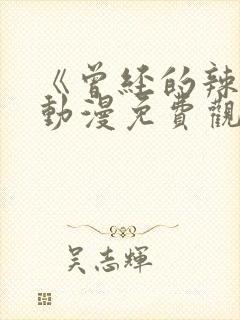 《曾经的辣
動漫免費觀
吴志輝